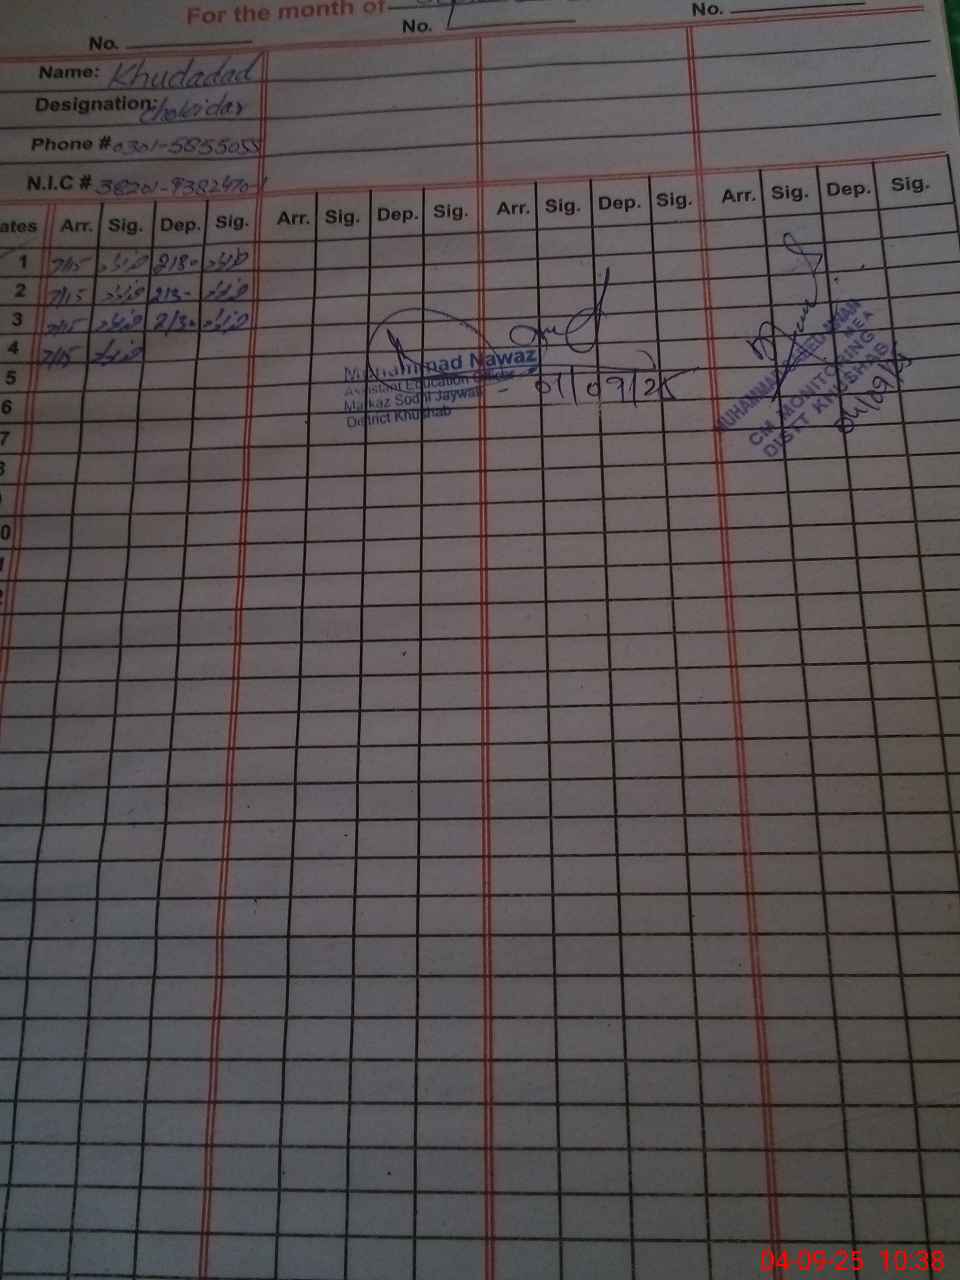 For the month of
No. No. No.
Name: Khudadad
Designation: Chokidar
Phone # 0301-5855055
N.I.C # 38201-9382470-1
ates Arr. Sig. Dep. Sig. Arr. Sig. Dep. Sig. Arr. Sig. Dep. Sig. Arr. Sig. Dep. Sig.
1 7/15 2/30
2 7/15 2/3-
3 7/15 2/30
4 7/15
5
6
7
Muhammad Nawaz
Assistant Education Officer
Markaz Sodhi Jaywali
District Khushab
01/09/25
MUHAMMAD KHAN
MEA
CM MONITORING
DISTT KHUSHAB
04/09/25
04-09-25 10:38